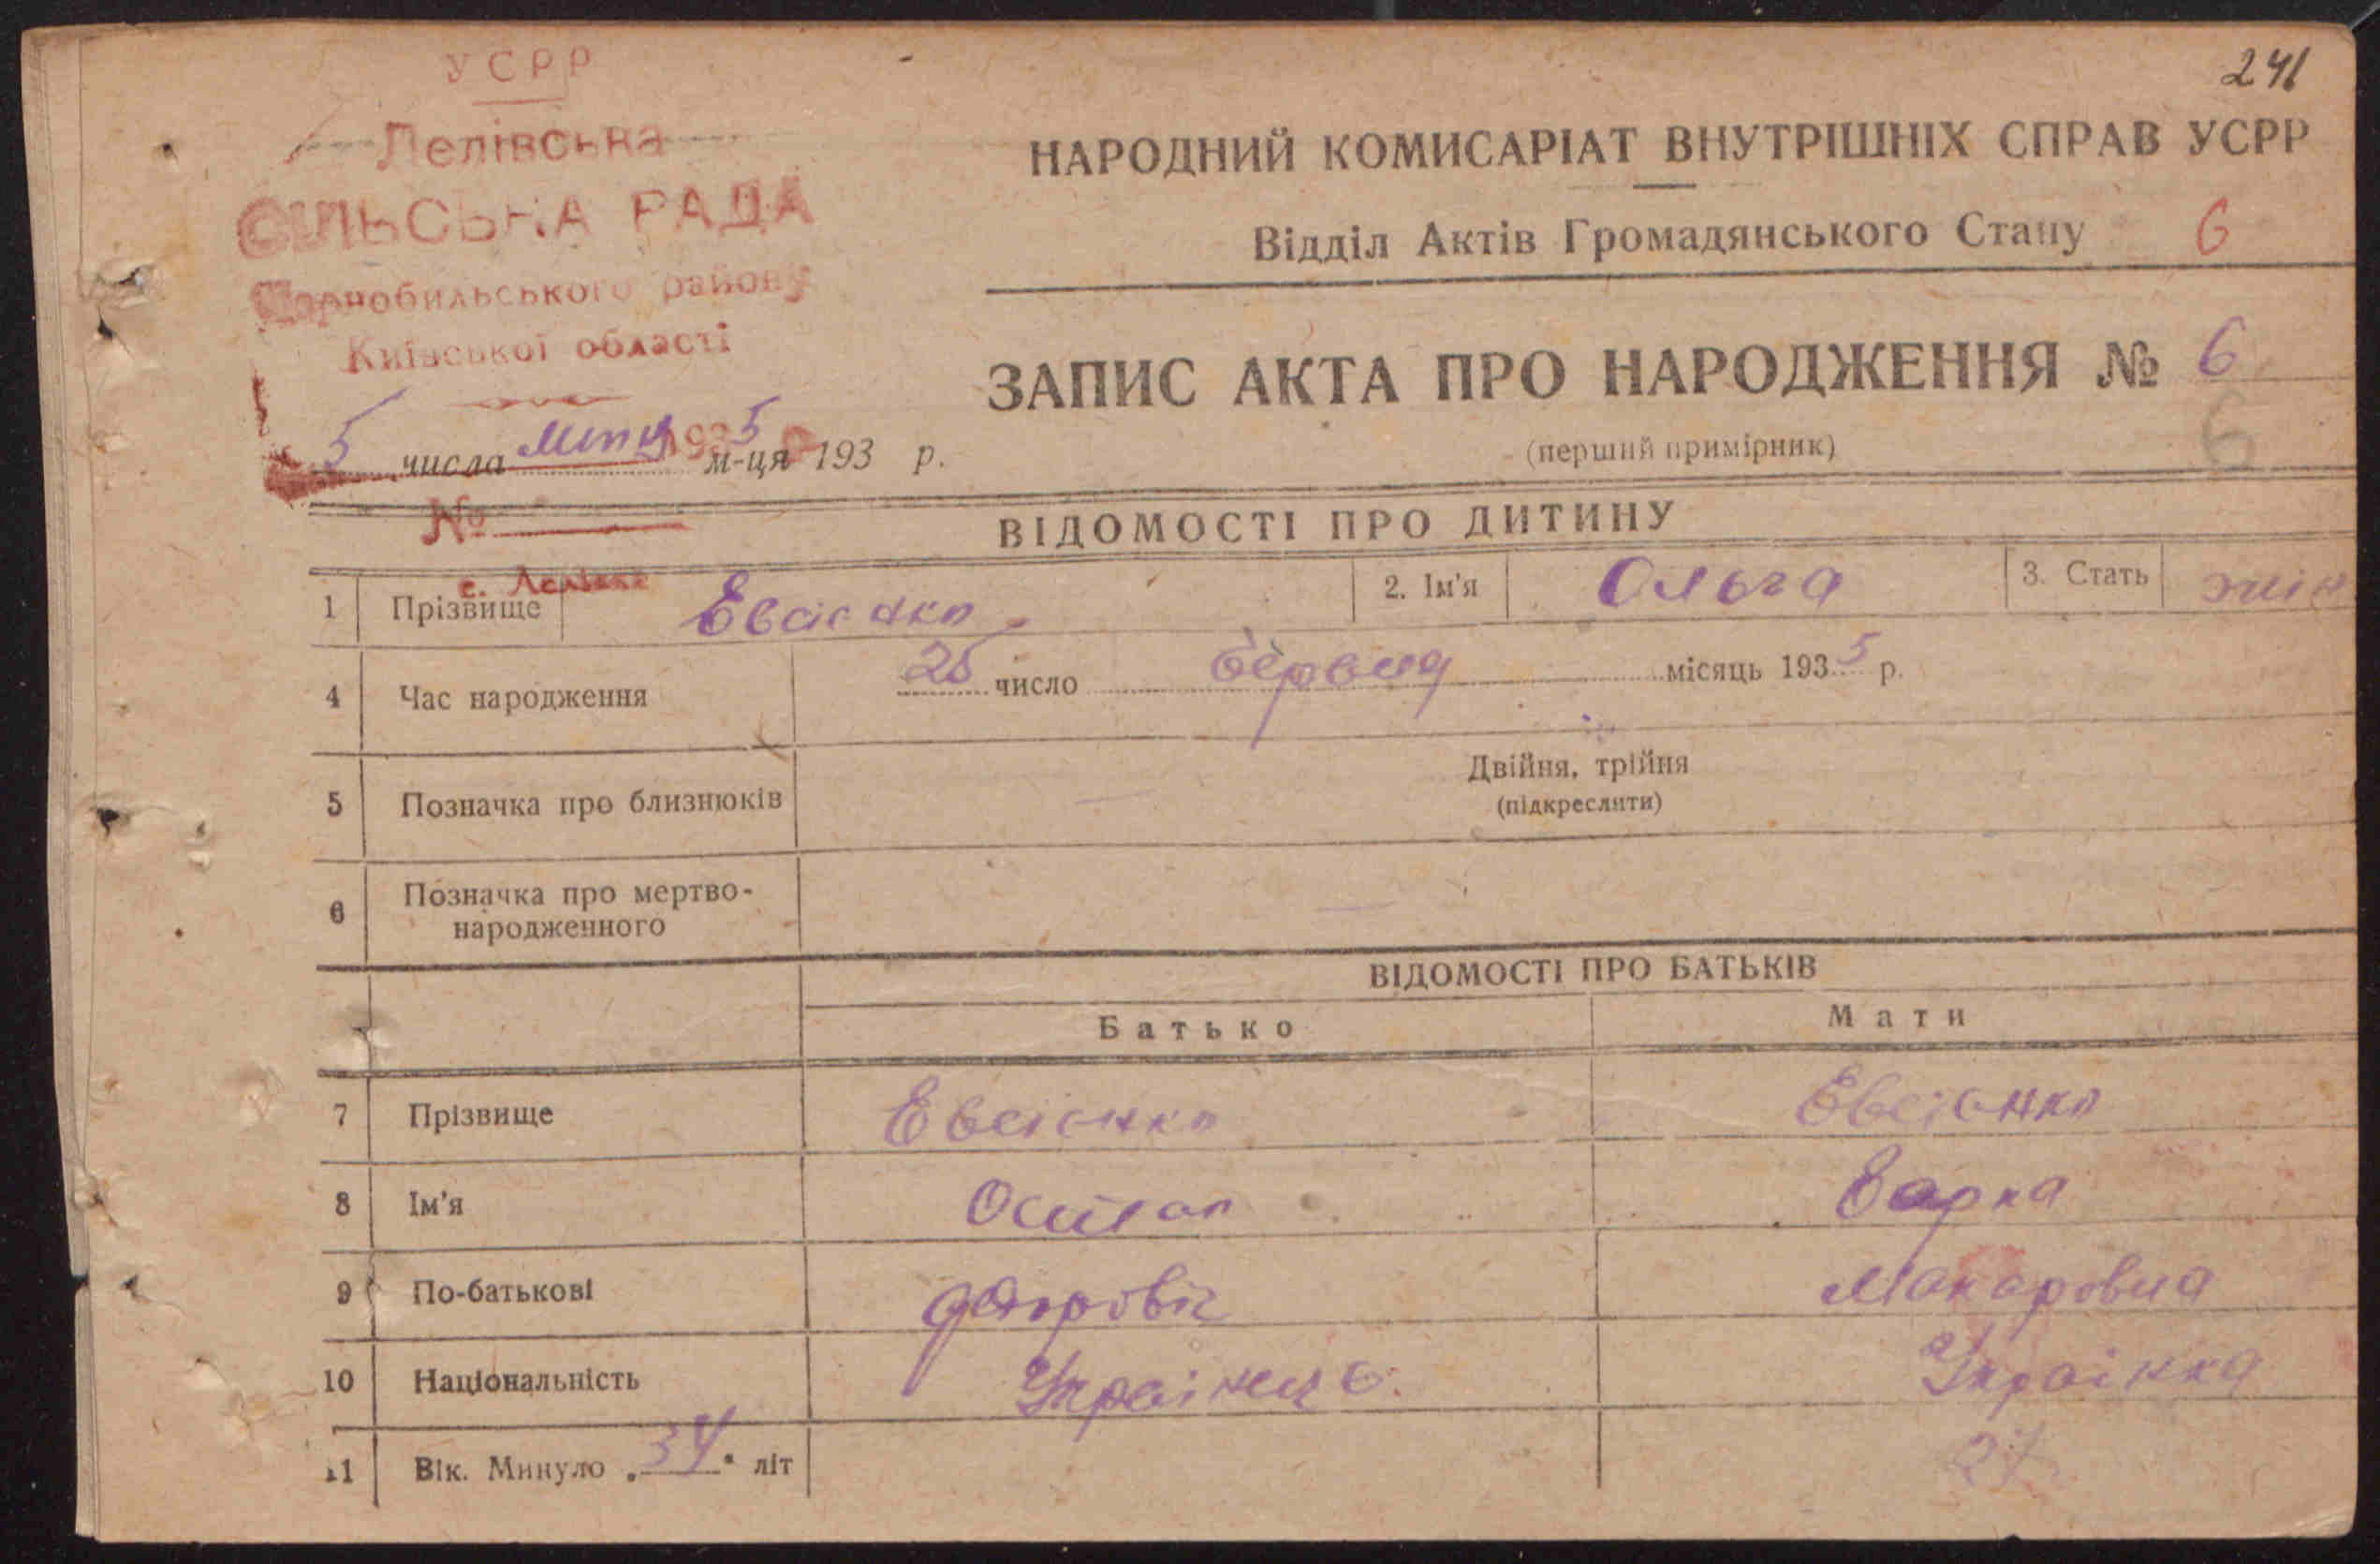 241
УСРР
Лелівська
СІЛЬСЬКА РАДА
Чорнобильського району
Київської області
5 числа 1935 м-ця 193 р.
№
с. Лелівка
НАРОДНИЙ КОМИСАРІАТ ВНУТРІШНІХ СПРАВ УСРР
Відділ Актів Громадянського Стану 6
ЗАПИС АКТА ПРО НАРОДЖЕННЯ № 6
(перший примірник) 6
ВІДОМОСТІ ПРО ДИТИНУ
1 Прізвище Евсієнко 2. Ім'я Ольга 3. Стать жін
4 Час народження 25 число місяць 1935 р.
5 Позначка про близнюків Двійня, трійня
(підкреслити)
6 Позначка про мертво-
народженного
ВІДОМОСТІ ПРО БАТЬКІВ
Батько Мати
7 Прізвище Евсієнко Евсієнко
8 Ім'я Варка
9 По-батькові Макаровна
10 Національність Українець Українка
11 Вік. Минуло „34" літ 27